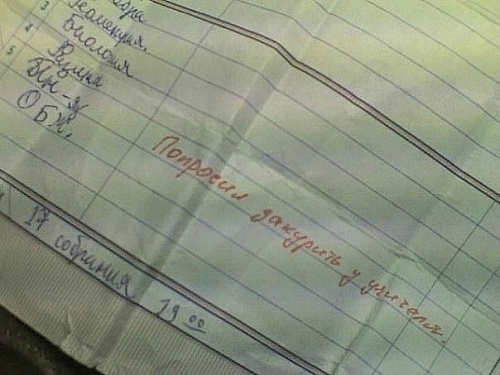 3 Геометрия
4 Биология
5 Физика
Ин-я
ОБЖ.
Попросил закурить у учителя.
17 собрания 19 00